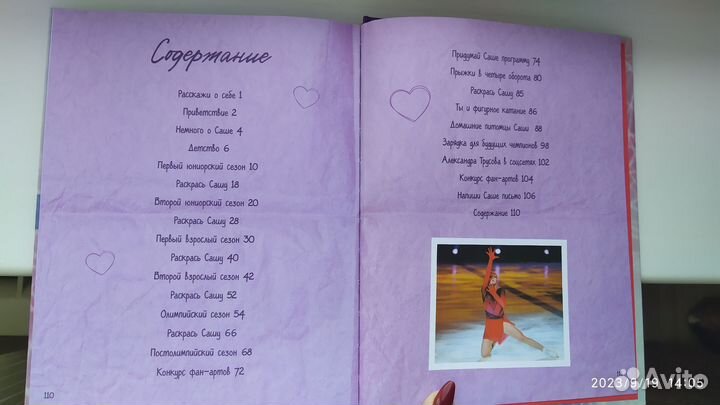 Содержание
Расскажи о себе 1
Приветствие 2
Немного о Саше 4
Детство 6
Первый юниорский сезон 10
Раскрась Сашу 18
Второй юниорский сезон 20
Раскрась Сашу 28
Первый взрослый сезон 30
Раскрась Сашу 40
Второй взрослый сезон 42
Раскрась Сашу 52
Олимпийский сезон 54
Раскрась Сашу 66
Постолимпийский сезон 68
Конкурс фан-артов 72
110
Придумай Саше программу 74
Прыжки в четыре оборота 80
Раскрась Сашу 85
Ты и фигурное катание 86
Домашние питомцы Саши 88
Зарядка для будущих чемпионов 98
Александра Трусова в соцсетях 102
Конкурс фан-артов 104
Напиши Саше письмо 106
Содержание 110
Avito
2023/9/19 14:05